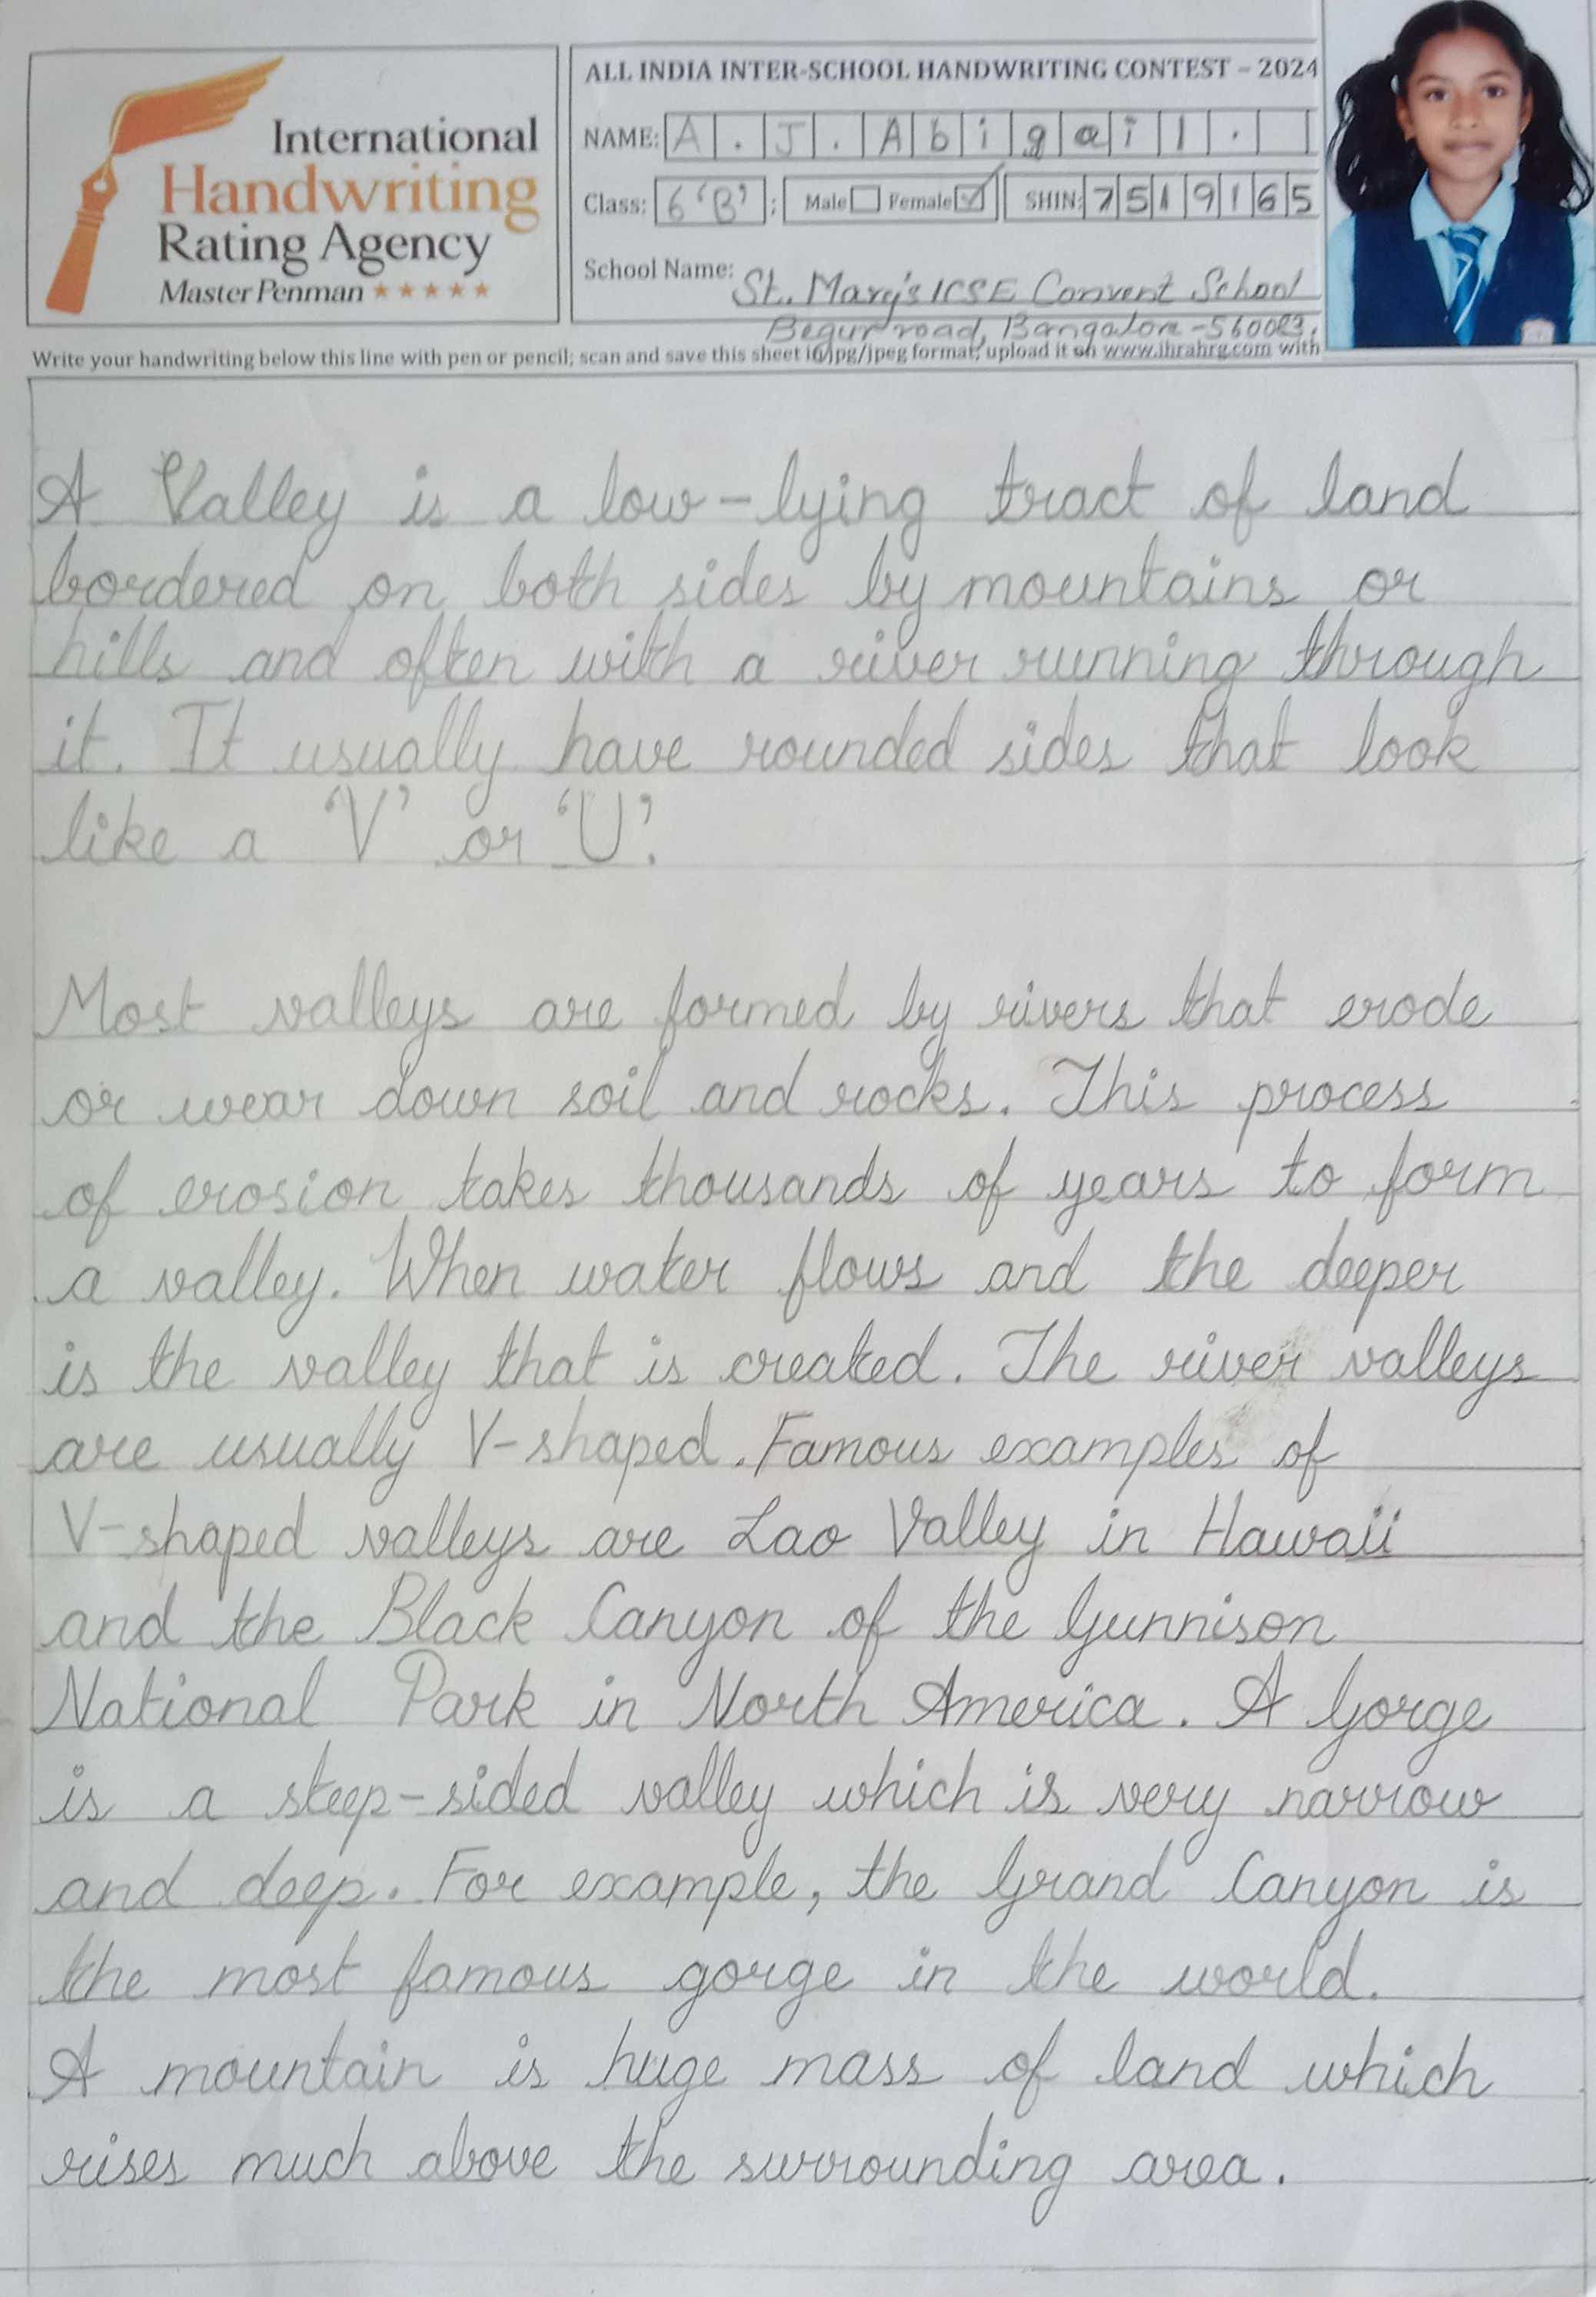 International
Handwriting
Rating Agency
Master Penman
ALL INDIA INTER-SCHOOL HANDWRITING CONTEST – 2024
NAME: A. J. Abigail.
Class: 6 'B'; Male Female SHIN: 7519165
School Name: St. Mary's ICSE Convent School
Begur road, Bangalore -
Write your handwriting below this line with pen or pencil; scan and save this sheet in jpg/jpeg format; upload it on www.ihrahrg.com with
A Valley is a low-lying tract of land
bordered on both sides by mountains or
hills and often with a river running through
it. It usually have rounded sides that look
like a 'V' or 'U'.
Most valleys are formed by rivers that erode
or wear down soil and rocks. This process
of erosion takes thousands of years to form
a valley. When water flows and the deeper
is the valley that is created. The river valleys
are usually V-shaped. Famous examples of
V-shaped valleys are Lao Valley in Hawaii
and the Black Canyon of the Gunnison
National Park in North America. A Gorge
is a steep-sided valley which is very narrow
and deep. For example, the Grand Canyon is
the most famous gorge in the world.
A mountain is huge mass of land which
rises much above the surrounding area.